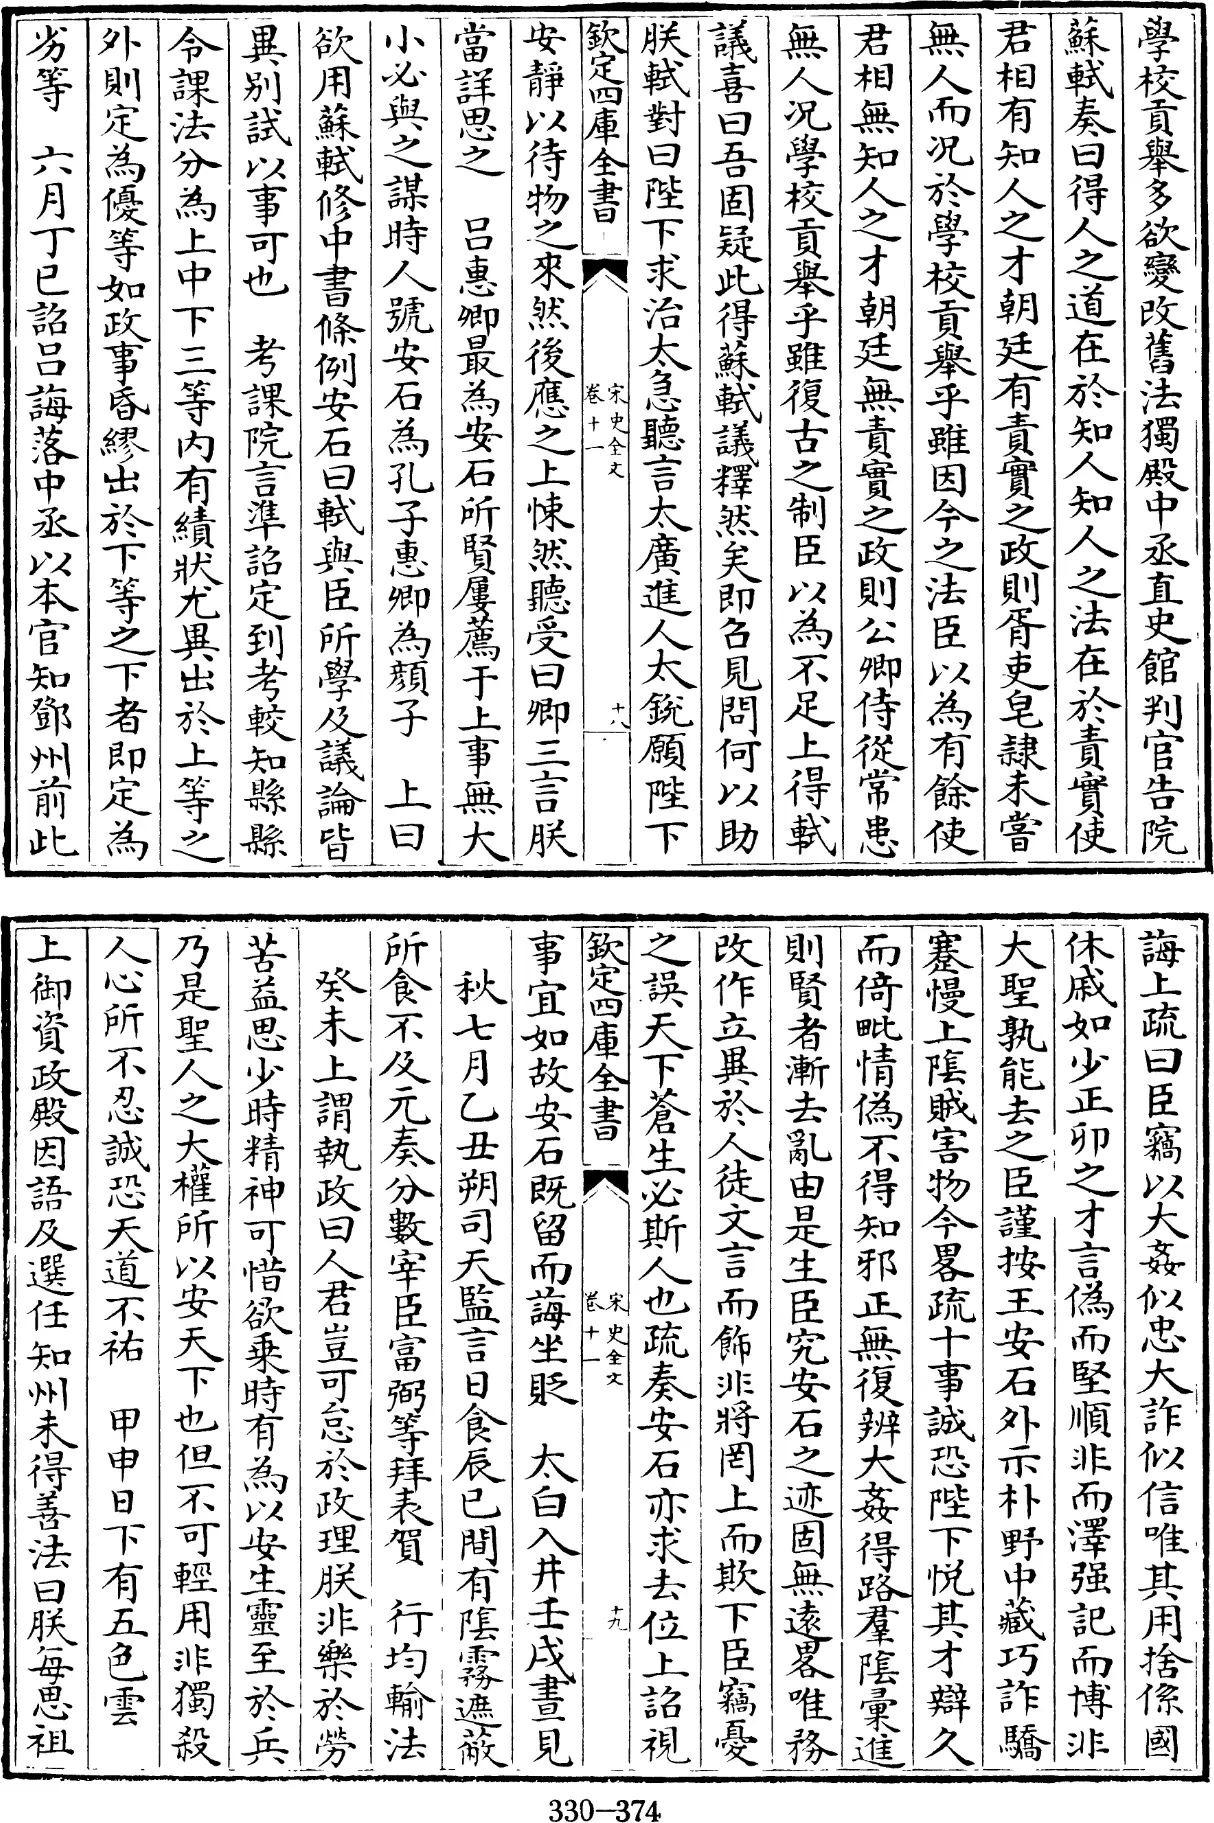 學校貢舉多欲變改舊法獨殿中丞直史館判官告院
蘇軾奏曰得人之道在於知人知人之法在於責實使
君相有知人之才朝廷有責實之政則胥吏皂隸未嘗
無人而況於學校貢舉乎雖因今之法臣以為有餘使
君相無知人之才朝廷無責實之政則公卿侍從常患
無人况學校貢舉乎雖復古之制臣以為不足上得軾
議喜曰吾固疑此得蘇軾議釋然矣即召見問何以助
朕軾對曰陛下求治太急聽言太廣進人太銳願陛下
欽定四庫全書
宋史全文
卷十一
十八
安靜以待物之來然後應之上悚然聽受曰卿三言朕
當詳思之 呂惠卿最為安石所賢屢薦于上事無大
小必與之謀時人號安石為孔子惠卿為顔子 上曰
欲用蘇軾修中書條例安石曰軾與臣所學及議論皆
異别試以事可也 考課院言準詔定到考較知縣縣
令課法分為上中下三等内有績狀尤異出於上等之
外則定為優等如政事昏繆出於下等之下者即定為
劣等 六月丁巳詔呂誨落中丞以本官知鄧州前此
誨上疏曰臣竊以大姦似忠大詐似信唯其用捨係國
休戚如少正卯之才言偽而堅順非而澤强記而博非
大聖孰能去之臣謹按王安石外示朴野中藏巧詐驕
蹇慢上隂賊害物今畧疏十事誠恐陛下悦其才辯久
而倚毗情偽不得知邪正無復辨大姦得路羣隂彚進
則賢者漸去亂由是生臣究安石之迹固無遠畧唯務
改作立異於人徒文言而飾非將罔上而欺下臣竊憂
之誤天下蒼生必斯人也疏奏安石亦求去位上詔視
欽定四庫全書
宋史全文
卷十一
十九
事宜如故安石既留而誨坐貶 太白入井壬戌晝見
秋七月乙丑朔司天監言日食辰巳間有隂霧遮蔽
所食不及元奏分數宰臣富弼等拜表賀 行均輸法
癸未上謂執政曰人君豈可怠於政理朕非樂於勞
苦益思少時精神可惜欲乗時有為以安生靈至於兵
乃是聖人之大權所以安天下也但不可輕用非獨殺
人心所不忍誠恐天道不祐 甲申日下有五色雲
上御資政殿因語及選任知州未得善法曰朕每思祖
330—374